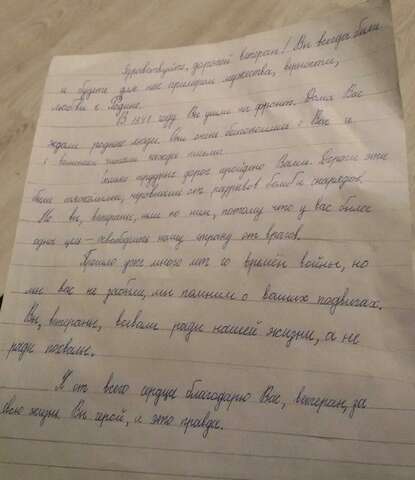 Здравствуйте, дорогой ветеран! Вы всегда были
и будете для нас примером мужества, верности,
любви к Родине.
В 1941 году Вы ушли на фронт. Дома Вас
ждали родные люди. Они очень беспокоились о Вас и
с волнением читали каждое письмо.
Сколько трудных дорог пройдено Вами. Дороги эти
были тяжёлыми, от разрывов бомб и снарядов.
Но вы, ветераны, шли по ним, потому что у вас была
одна цель – освободить нашу страну от врагов.
Прошло уже много лет со времён войны, но
мы вас не забыли, мы помним о ваших подвигах.
Вы, ветераны, воевали ради нашей жизни, а не
ради похвалы.
Я от всего сердца благодарю Вас, ветеран, за
свою жизнь. Вы герой, и это правда.